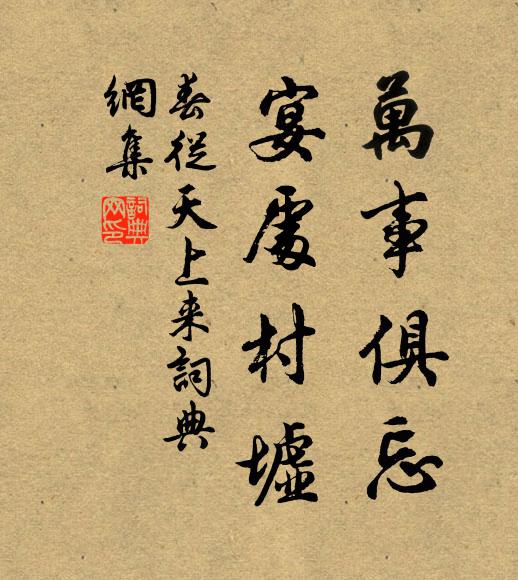 萬事俱忘
宴處村墟
春從天上来詞典
網集
詞典
网印